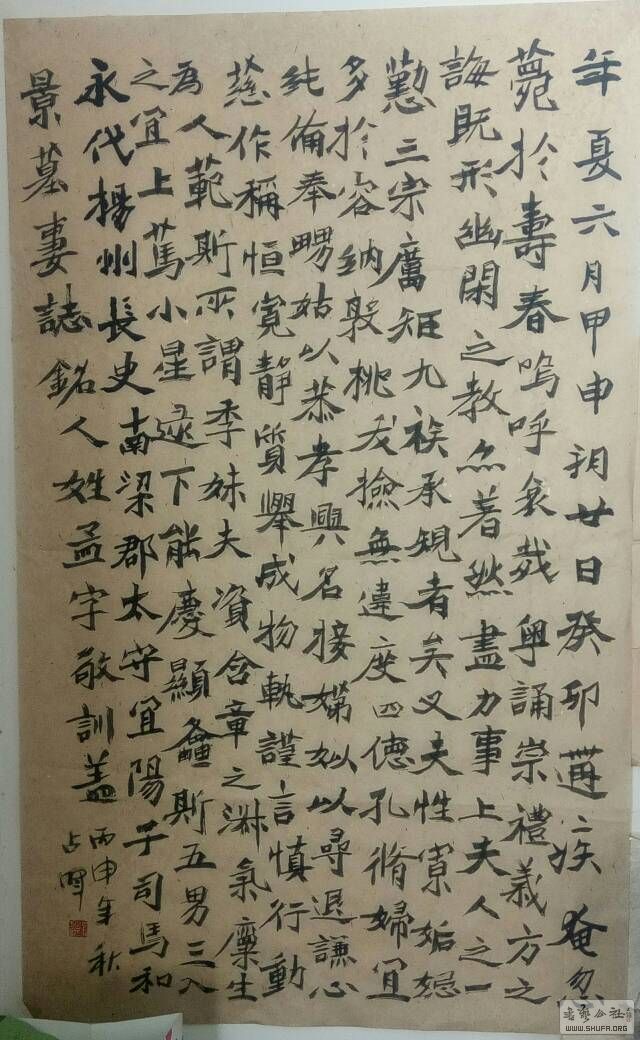 年夏六月甲申朔廿日癸卯遘〻疾奄忽
薨於壽春嗚呼哀哉粤誦崇禮義方之
誨既形幽閑之教亦著然盡力事上夫人之一
懃三宗厲矩九族承規者矣又夫性寡妬忌
多於容納敦桃夭撿無違度四德孔脩婦宜
純備奉舅姑以恭孝興名接娣姒以尋退謙心
慈作稱恒寬静質舉成物軌謹言慎行動
為人範斯所謂季妹夫資含章之淋氣稟生
之宜上篤小星逮下能慶顯螽斯五男三入
永代揚州長史南梁郡太守宜陽子司馬和
景墓妻誌銘人姓孟字敬訓蓋
丙申年秋
占
書藝公社
WWW.SHUFA.ORG